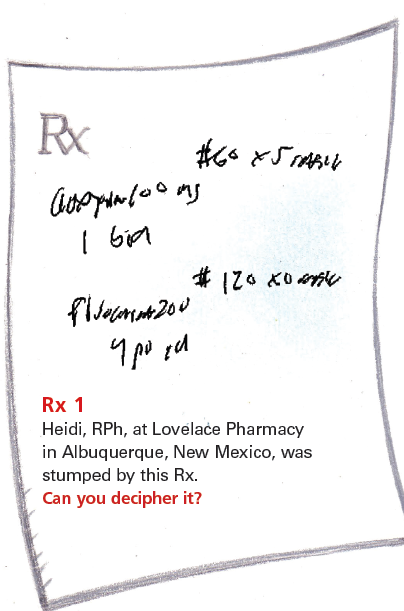 Rx
#60 x 5 refills
100 mg
1 bid
# 120 x 0 refills
Fluconazole 200
4 po qd
Rx 1
Heidi, RPh, at Lovelace Pharmacy
in Albuquerque, New Mexico, was
stumped by this Rx.
Can you decipher it?